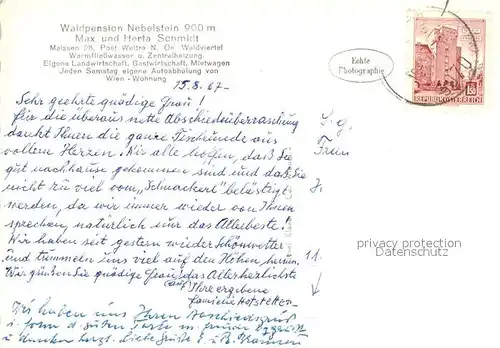 Waldpension Nebelstein 900 m
Max und Herta Schmidt
Maissen 28, Post Weitra N. Oe. Waldviertel
Warmfließwasser u. Zentralheizung,
Eigene Landwirtschaft, Gastwirtschaft, Mietwagen
Jeden Samstag eigene Autoabholung von
Wien - Wohnung
Echte
Photographie
REPUBLIK ÖSTERREICH
15.8.67-
Sehr geehrte gnädige Frau!
Für die überaus nette Abschiedsüberraschung
dankt Ihnen die ganze Tischrunde aus
vollem Herzen. Wir alle hoffen, daß Sie
gut nachhause gekommen sind und daß Sie
nicht zu viel vom "Schnackerl" belästigt
werden, da wir immer wieder von Ihnen
sprechen, natürlich nur das Allerbeste!
Wir haben seit gestern wieder Schönwetter
und tummeln uns viel auf den Höhen herum.
Wir grüßen Sie gnädige Frau das Allerherzlichste
Ihre ergebene
familie Hofstetter
Wir haben uns Ihren Abschiedsgruß
S. g.
Frau
11.
privacy protection
watermark